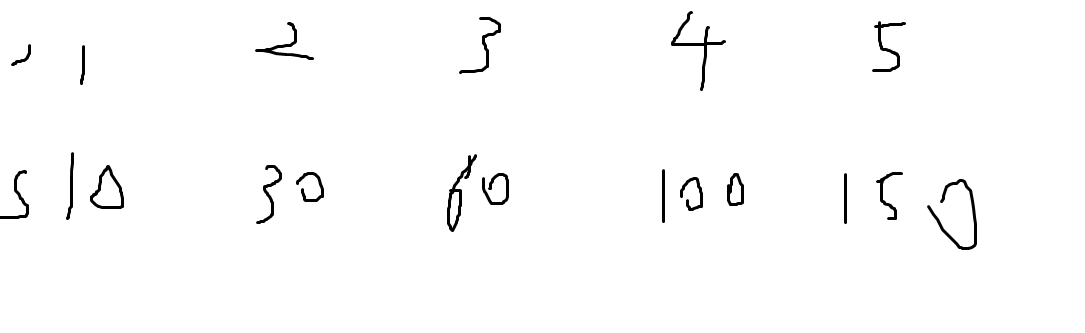 1 2 3 4 5
s 10 30 60 100 150